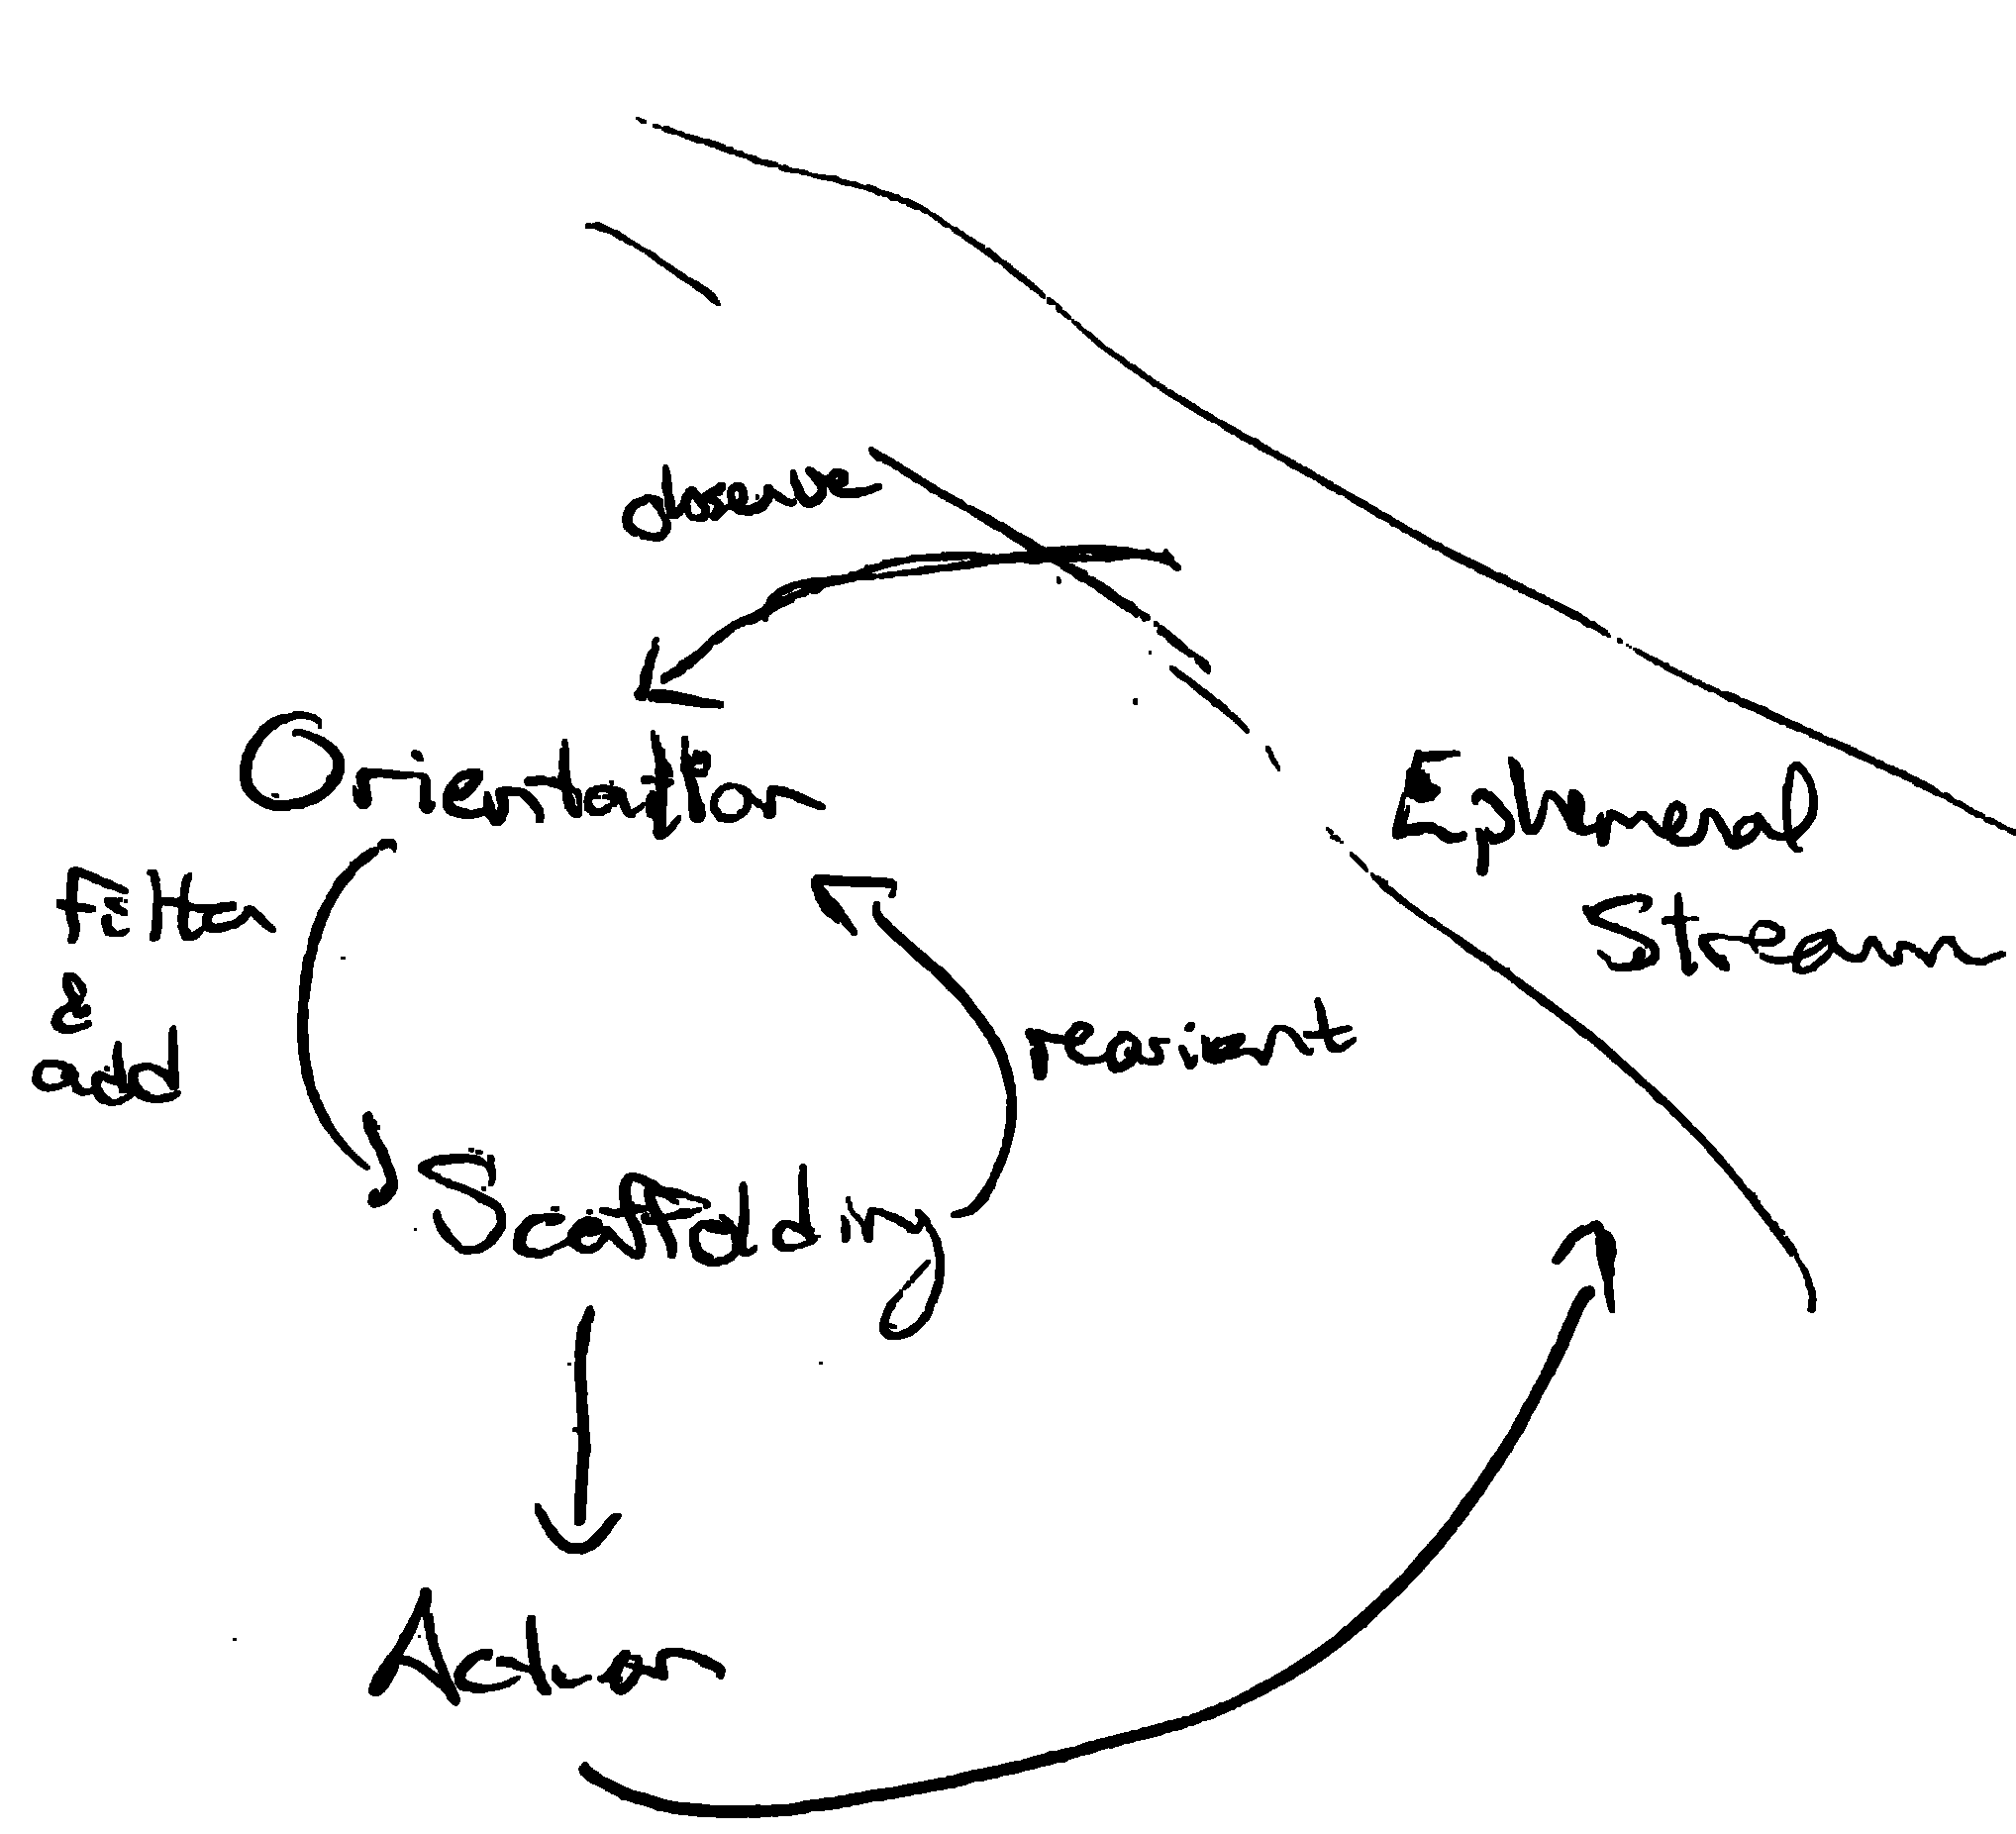 observe
Orientation
Ephemeral
Stream
Filter
&
add
reorient
Scaffolding
Action